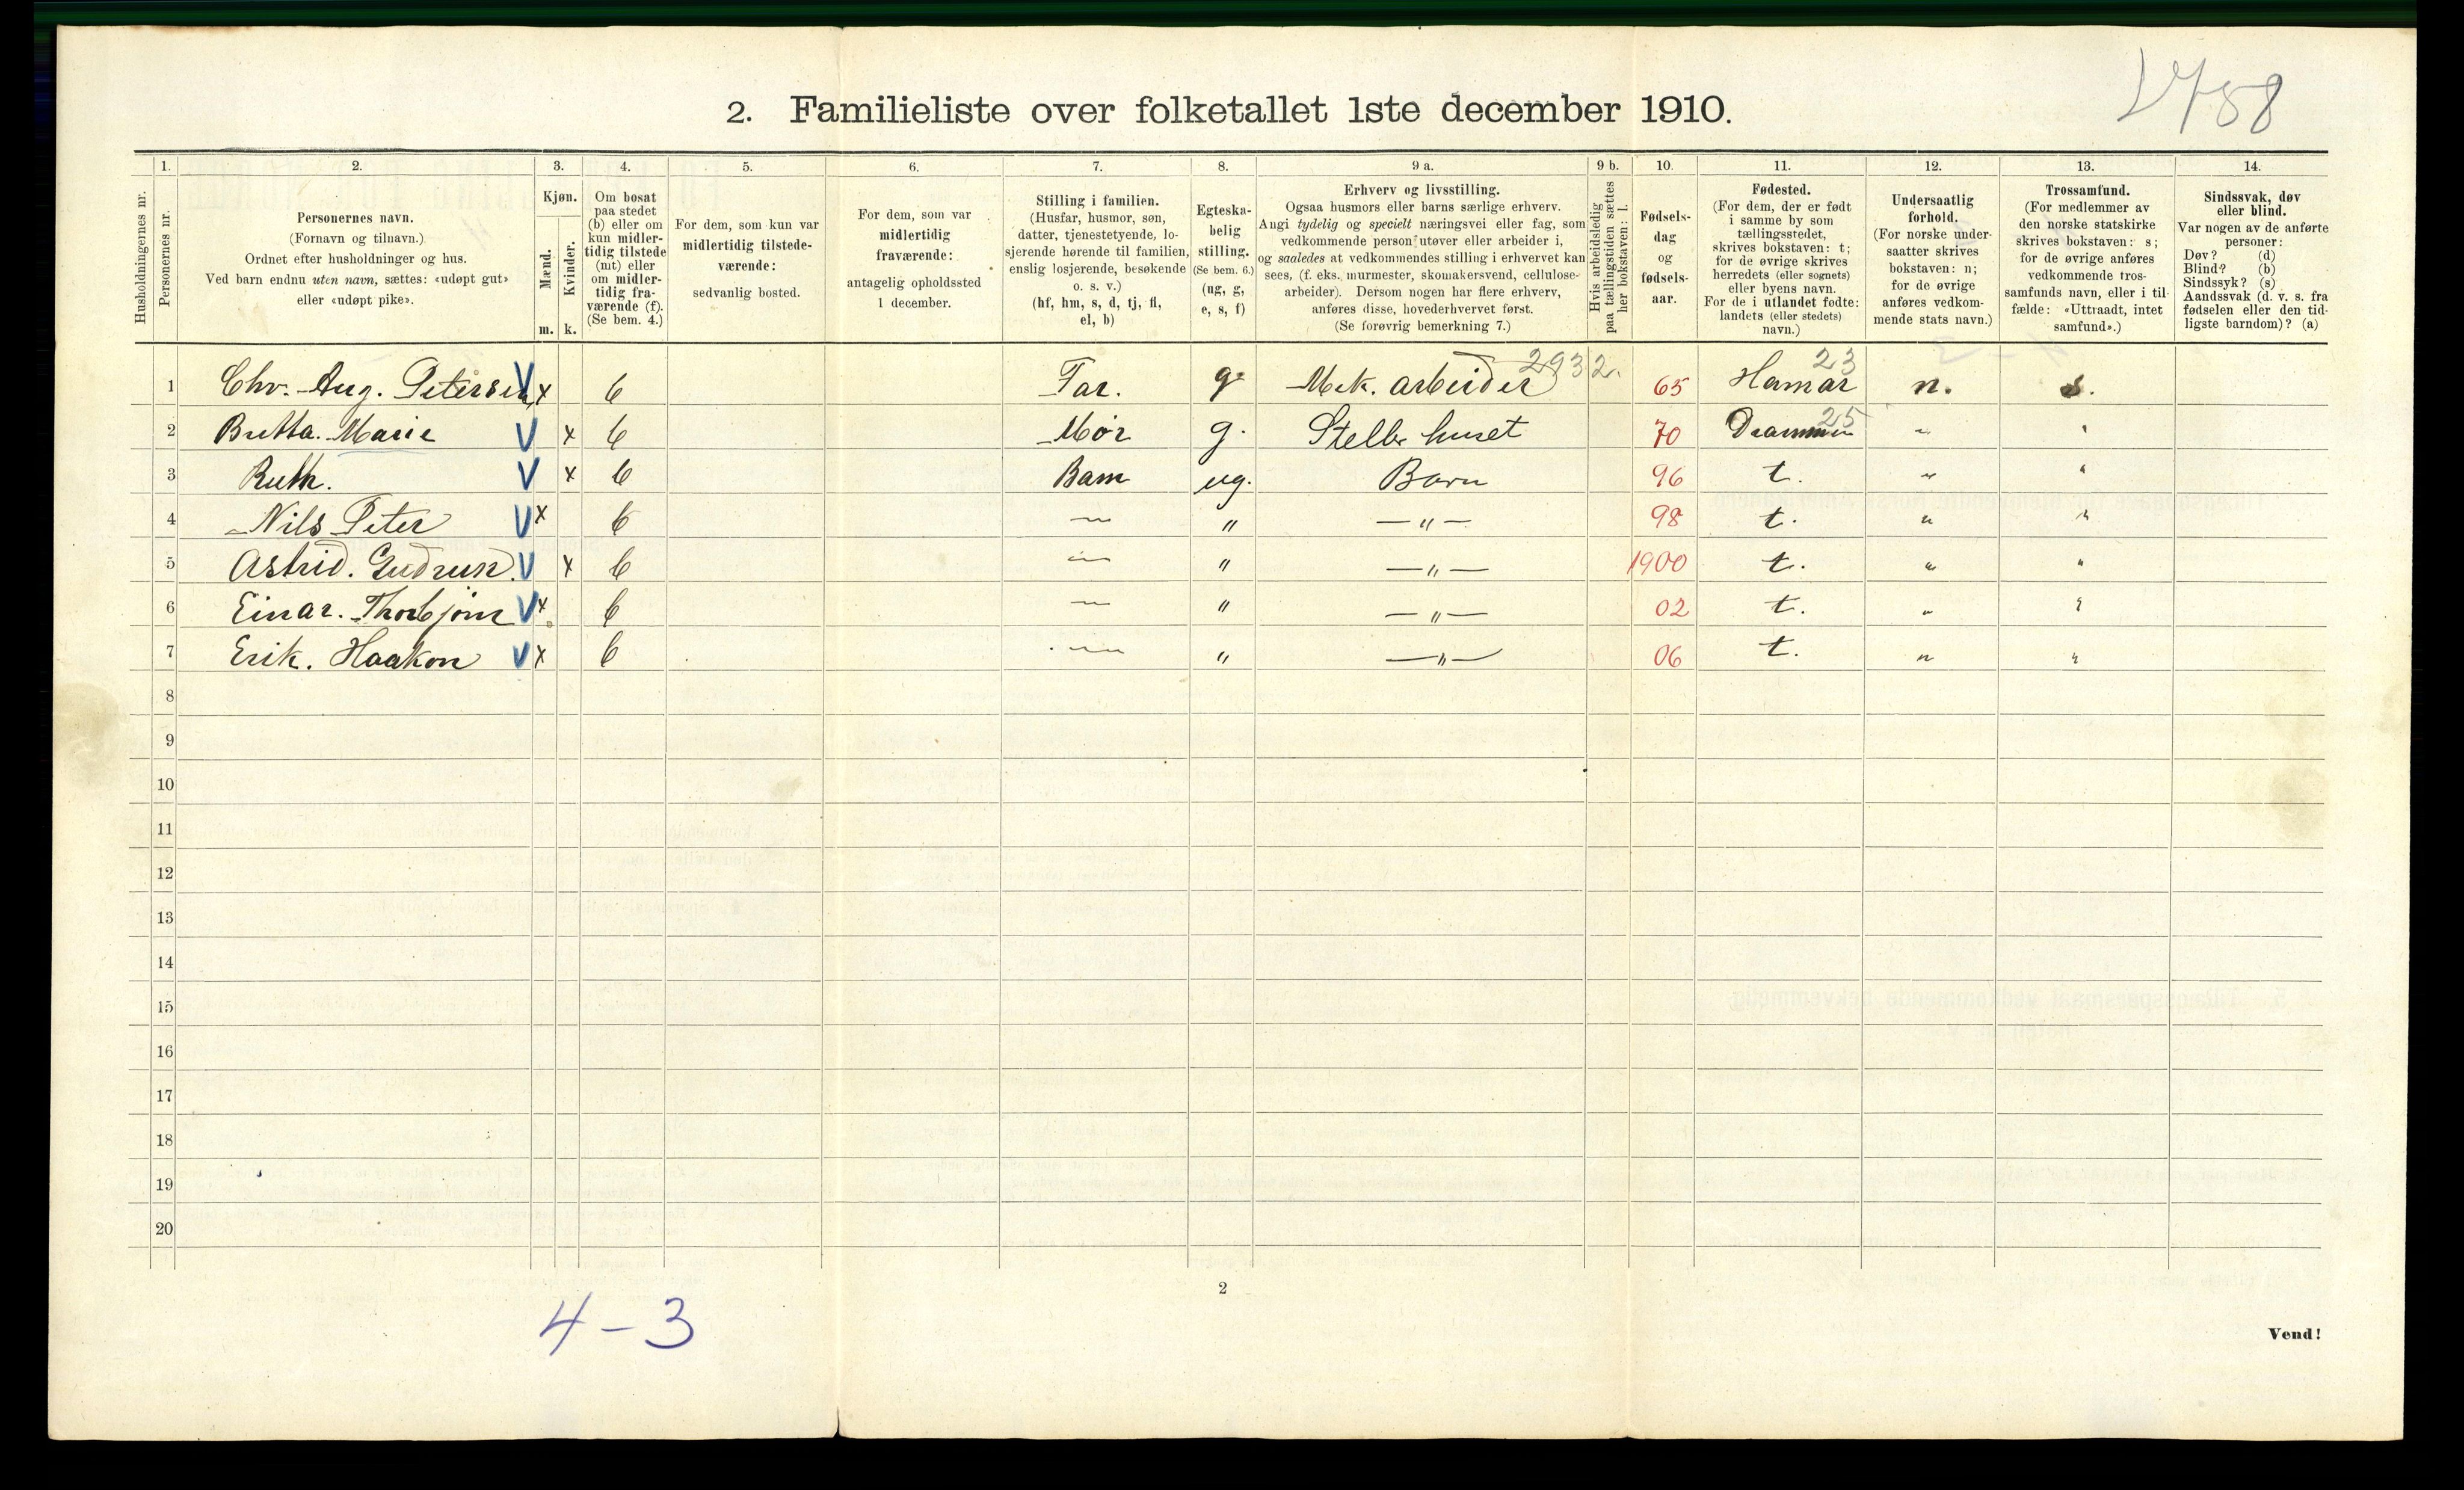 2. Familieliste over folketallet 1ste december 1910.
Husholdningernes nr.
1.
Personernes nr.
2.
Personernes navn.
(Fornavn og tilnavn.)
Ordnet efter husholdninger og hus.
Ved barn endnu uten navn, sættes: «udøpt gut»
eller «udøpt pike».
3.
Kjøn.
Mænd.
m.
Kvinder.
k.
4.
Om bosat
paa stedet
(b) eller om
kun midler-
tidig tilstede
(mt) eller
om midler-
tidig fra-
værende (f).
(Se bem. 4.)
5.
For dem, som kun var
midlertidig tilstede-
værende:
sedvanlig bosted.
6.
For dem, som var
midlertidig
fraværende:
antagelig opholdssted
1 december.
7.
Stilling i familien.
(Husfar, husmor, søn,
datter, tjenestetyende, lo-
sjerende hørende til familien,
enslig losjerende, besøkende
o. s. v.)
(hf, hm, s, d, tj, fl,
el, b)
8.
Egteska-
belig
stilling.
(Se bem. 6.)
(ug, g,
e, s, f)
9 a.
Erhverv og livsstilling.
Ogsaa husmors eller barns særlige erhverv.
Angi tydelig og specielt næringsvei eller fag, som
vedkommende person utøver eller arbeider i,
og saaledes at vedkommendes stilling i erhvervet kan
sees, (f. eks. murmester, skomakersvend, cellulose-
arbeider). Dersom nogen har flere erhverv,
anføres disse, hovederhvervet først.
(Se forøvrig bemerkning 7.)
9 b.
Hvis arbeidsledig
paa tællingstiden sættes
her bokstaven: l.
10.
Fødsels-
dag
og
fødsels-
aar.
11.
Fødested.
(For dem, der er født
i samme by som
tællingsstedet,
skrives bokstaven: t;
for de øvrige skrives
herredets (eller sognets)
eller byens navn.
For de i utlandet fødte:
landets (eller stedets)
navn.)
12.
Undersaatlig
forhold.
(For norske under-
saatter skrives
bokstaven: n;
for de øvrige
anføres vedkom-
mende stats navn.)
13.
Trossamfund.
(For medlemmer av
den norske statskirke
skrives bokstaven: s;
for de øvrige anføres
vedkommende tros-
samfunds navn, eller i til-
fælde: «Uttraadt, intet
samfund».)
14.
Sindssvak, døv
eller blind.
Var nogen av de anførte
personer:
Døv? (d)
Blind? (b)
Sindssyk? (s)
Aandssvak (d. v. s. fra
fødselen eller den tid-
ligste barndom)? (a)
2932. 23
1 Chr. Aug. Petersen V x b Far. g. Mek. arbeider 65 Hamar n. s.
25
2 Marie V x b Mor g. Steller huset 70 Drammen " "
3 Ruth. V x b Barn ug. Barn 96 t. " "
4 Nils Peter V x b — " — " — 98 t. " "
5 Astrid. Gudrun. V x b — " — " — 1900 t. " "
6 Einar. Thorbjørn V x b — " — " — 02 t. " "
7 Erik. Haakon V x b — " — " — 06 t. " "
8
9
10
11
12
13
14
15
16
17
18
19
20
2
4 – 3
Vend!